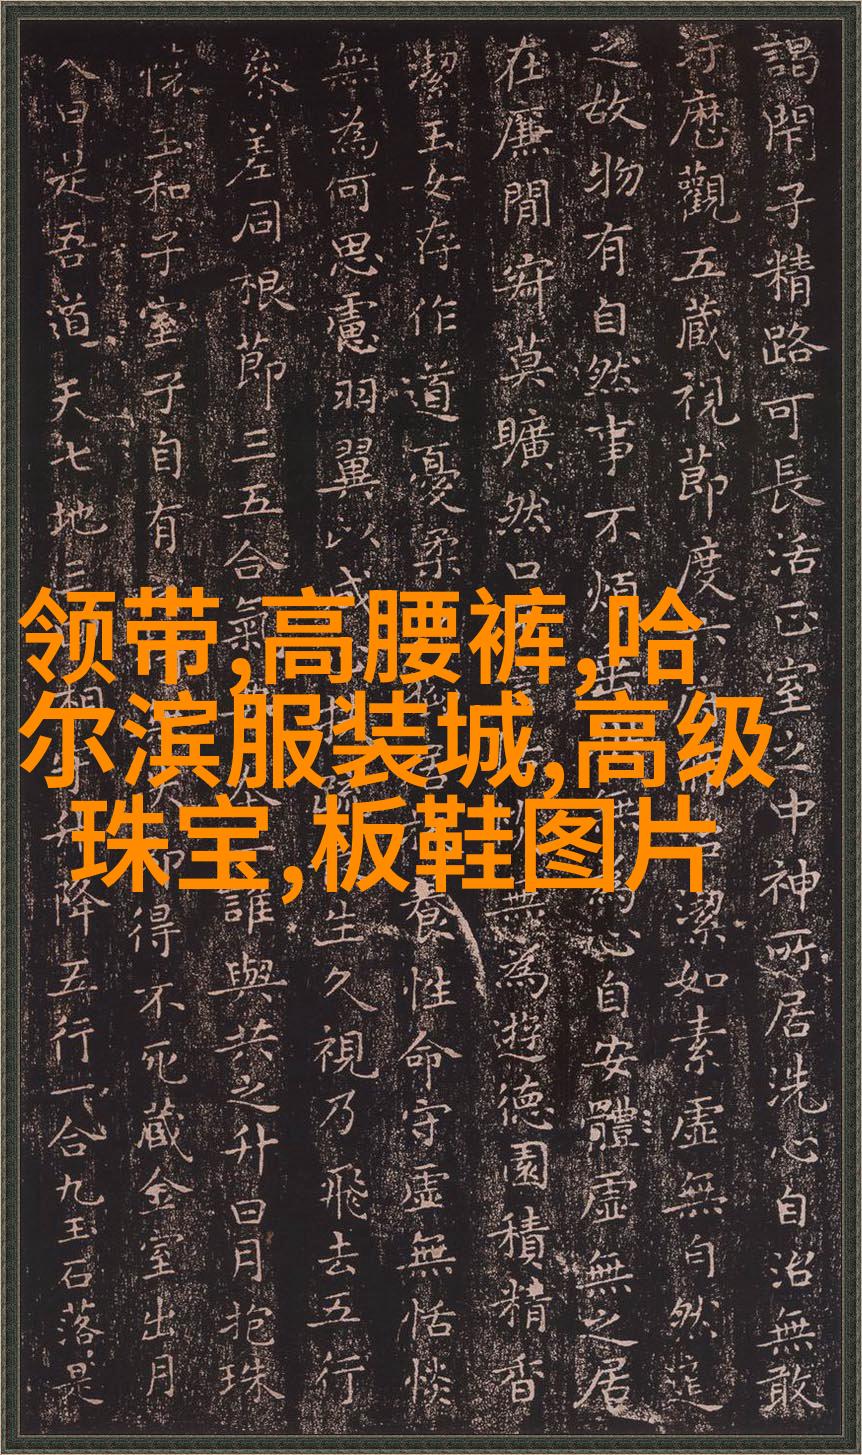 謁閇子精路可長活正室之中神所居洗心自治無敢
汙歷觀五藏視節度六府治潔如素虛無自然道
之故物有自然事不煩垂無為心自安體虛無之居
在廉間寂莫曠然口言無為遊德園積精香
潔玉女存作道憂柔獨居養性命守虛無恬惔
無為何思慮羽翼以成扶疏生久視乃飛去五行
參差同根節三五合氣本一誰與共之升日月抱珠
懷玉和子室子自有失即得不死藏金室出月
入日是吾道天七地三相守升降五行一合九玉石落是
领带,高腰裤,哈
尔滨服装城,高级
珠宝,板鞋图片